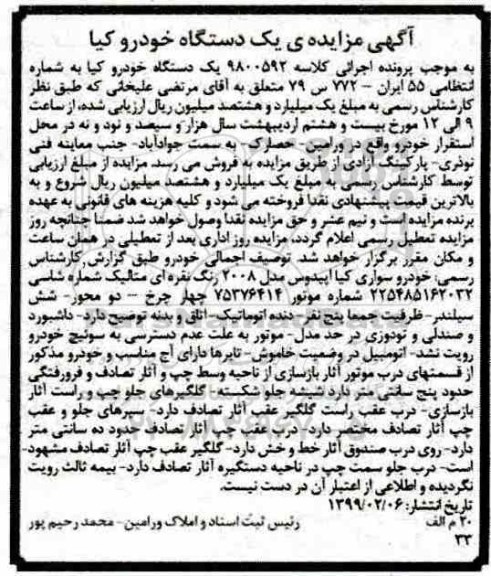 آگهی مزایده ی یک دستگاه خودرو کیا
به موجب پرونده اجرائی کلاسه ۹۸۰۰۵۹۲ یک دستگاه خودرو کیا به شماره
انتظامی ۵۵ ایران - ۷۷۲ س ۷۹ متعلق به آقای مرتضی علیخانی که طبق نظر
کارشناس رسمی به مبلغ یک میلیارد و هشتصد میلیون ریال ارزیابی شده، از ساعت
۹ الی ۱۲ مورخ بیست و هشتم اردیبهشت سال هزار و سیصد و نود و نه در محل
استقرار خودرو واقع در ورامین- حصارک- به سمت جوادآباد- جنب معاینه فنی
نوذری- پارکینگ آزادی از طریق مزایده به فروش می رسد. مزایده از مبلغ ارزیابی
توسط کارشناس رسمی به مبلغ یک میلیارد و هشتصد میلیون ریال شروع و به
بالاترین قیمت پیشنهادی نقدا فروخته می شود و کلیه هزینه های قانونی به عهده
برنده مزایده است و نیم عشر و حق مزایده نقدا وصول خواهد شد ضمنا چنانچه روز
مزایده تعطیل رسمی اعلام گردد، مزایده روز اداری بعد از تعطیلی در همان ساعت
و مکان مقرر برگزار خواهد شد. توصیف اجمالی خودرو طبق گزارش کارشناس
رسمی: خودرو سواری کیا اپیروس مدل ۲۰۰۸ رنگ نقره ای متالیک شماره شاسی
۲۲۵۴۸۵۱۶۲۰۳۲ شماره موتور ۷۵۳۷۶۴۱۴ چهار چرخ - دو محور- شش
سیلندر- ظرفیت جمعا پنج نفر- دنده اتوماتیک- اتاق و بدنه توضیح دارد- داشبورد
و صندلی و تودوزی در حد مدل- موتور به علت عدم دسترسی به سوئیچ خودرو
رویت نشد- اتومبیل در وضعیت خاموش- تایرها دارای آج مناسب و خودرو مذکور
از قسمتهای درب موتور آثار بازسازی از ناحیه وسط چپ و آثار تصادف و فرورفتگی
حدود پنج سانتی متر دارد شیشه جلو شکسته- گلگیرهای جلو چپ و راست آثار
بازسازی- درب عقب راست گلگیر عقب آثار تصادف دارد- سپرهای جلو و عقب
چپ آثار تصادف مختصر دارد- درب عقب چپ آثار تصادف حدود ده سانتی متر
دارد- روی درب صندوق آثار خط و خش دارد- گلگیر عقب چپ آثار تصادف مشهود-
است- درب جلو سمت چپ در ناحیه دستگیره آثار تصادف دارد- بیمه ثالث رویت
نگردیده و اطلاعی از اعتبار آن در دست نیست.
تاریخ انتشار: ۱۳۹۹/۰۲/۰۶
۲۰ م الف رئیس ثبت اسناد و املاک ورامین- محمد رحیم پور
۳۳